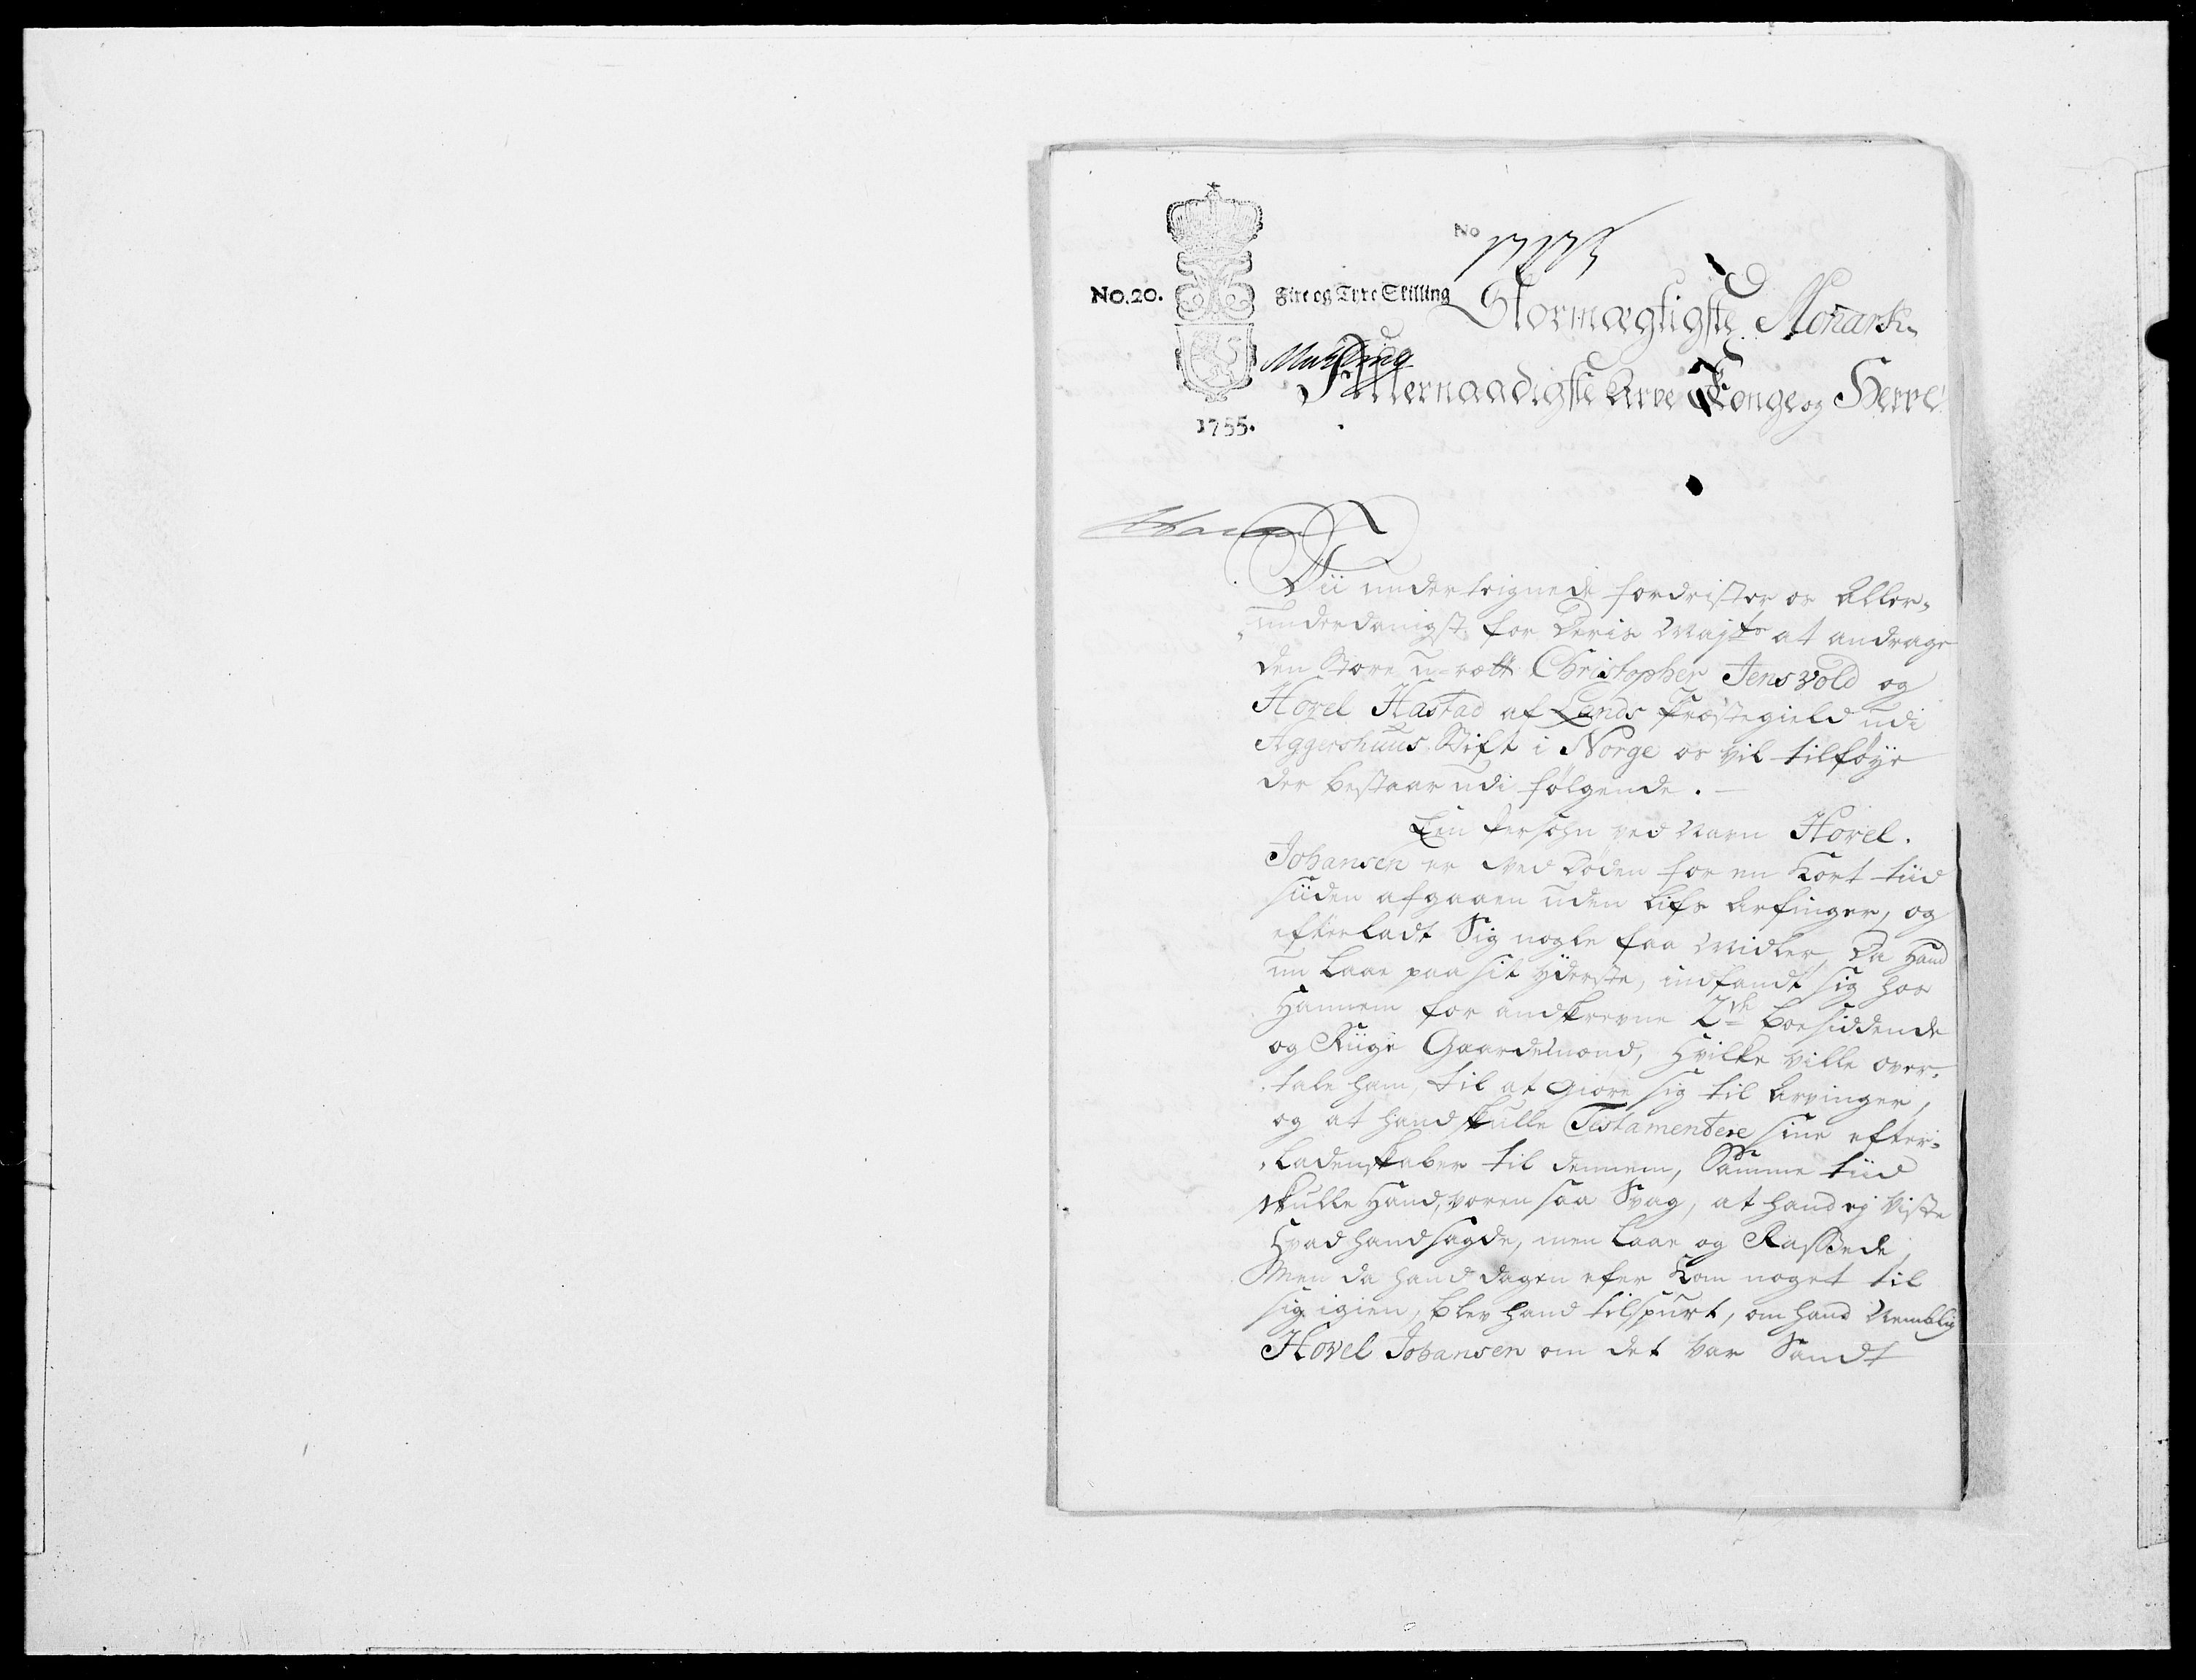 No
No.20.
Fire og Tyve Skilling
Stormægtigste Monark.
Allernaadigste Arve Konge og Herre
1755.
Vii underteignede fordrister os Aller-
underdanigst for Deris Majts at andrage
den Store u-rætt Christopher Jensvold og
Hovel Hastad af Lands Præstegield udi
Aggershuus Stift i Norge os vil tilføye
der bestaar udi følgende. —
Een Persohn ved Navn Hovel.
Johansen er ved Døden for en Kort tiid
siiden afgaaen uden Lifs Arfinger, og
efterladt Sig nogle faa Midler, Da Hand
nu Laae paa sit yderste, indfandt sig hos
Hannem for andskrevne 2de Boesiddende
og Riige Gaardemænd, Hvilke ville over-
tale ham, til at giøre sig til Arvinger,
og at hand skulle Testamentere sine efter-
ladenskaber til dennem, Samme tiid
skulle Hand, voren saa Svag, at hand ej Viste
Hvad hand sagde, men Laae og Rassede,
Men da hand dagen efer Kom noget til
sig igien, blev hand tilspurt, om hand Nemblig
Hovel Johansen om det var Sandt